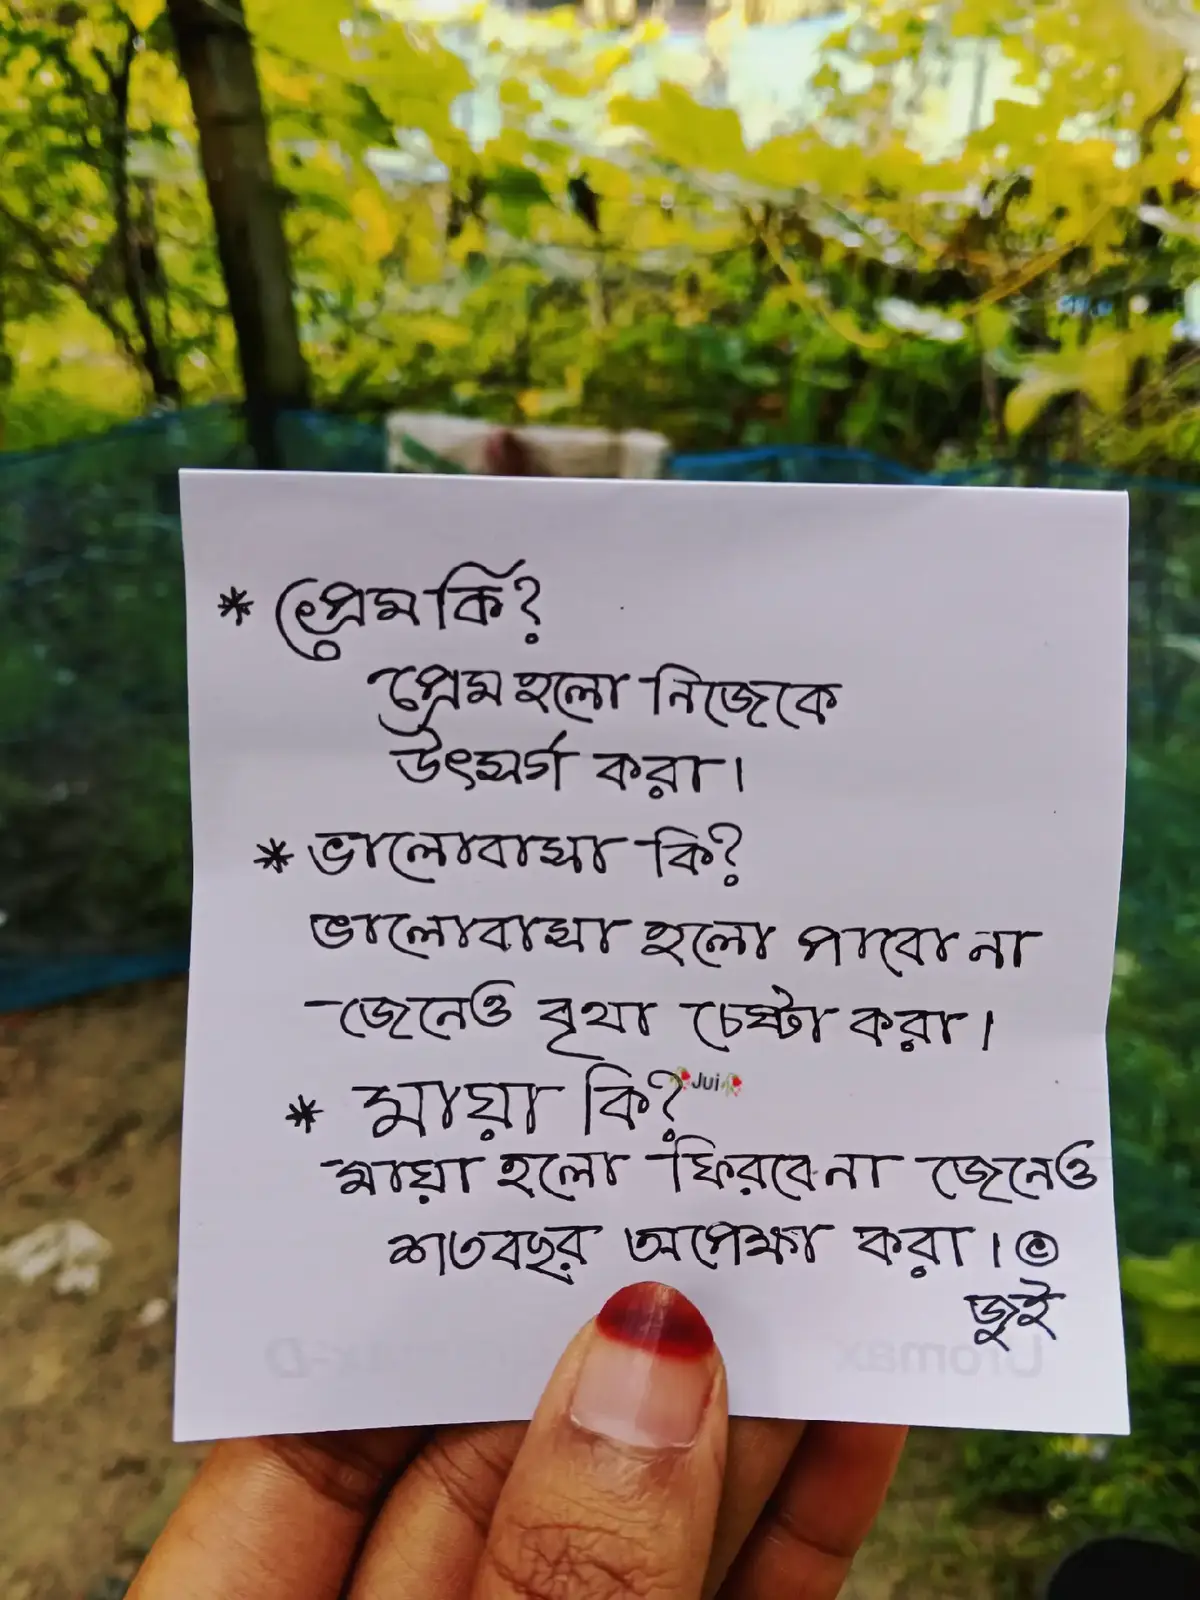 * প্রেম কি?
প্রেম হলো নিজেকে
উৎসর্গ করা।
* ভালোবাসা কি?
ভালোবাসা হলো পাবো না
জেনেও বৃথা চেষ্টা করা।
* মায়া কি?
Jui
মায়া হলো ফিরবে না জেনেও
শতবছর অপেক্ষা করা। ©
জুই
Uromax